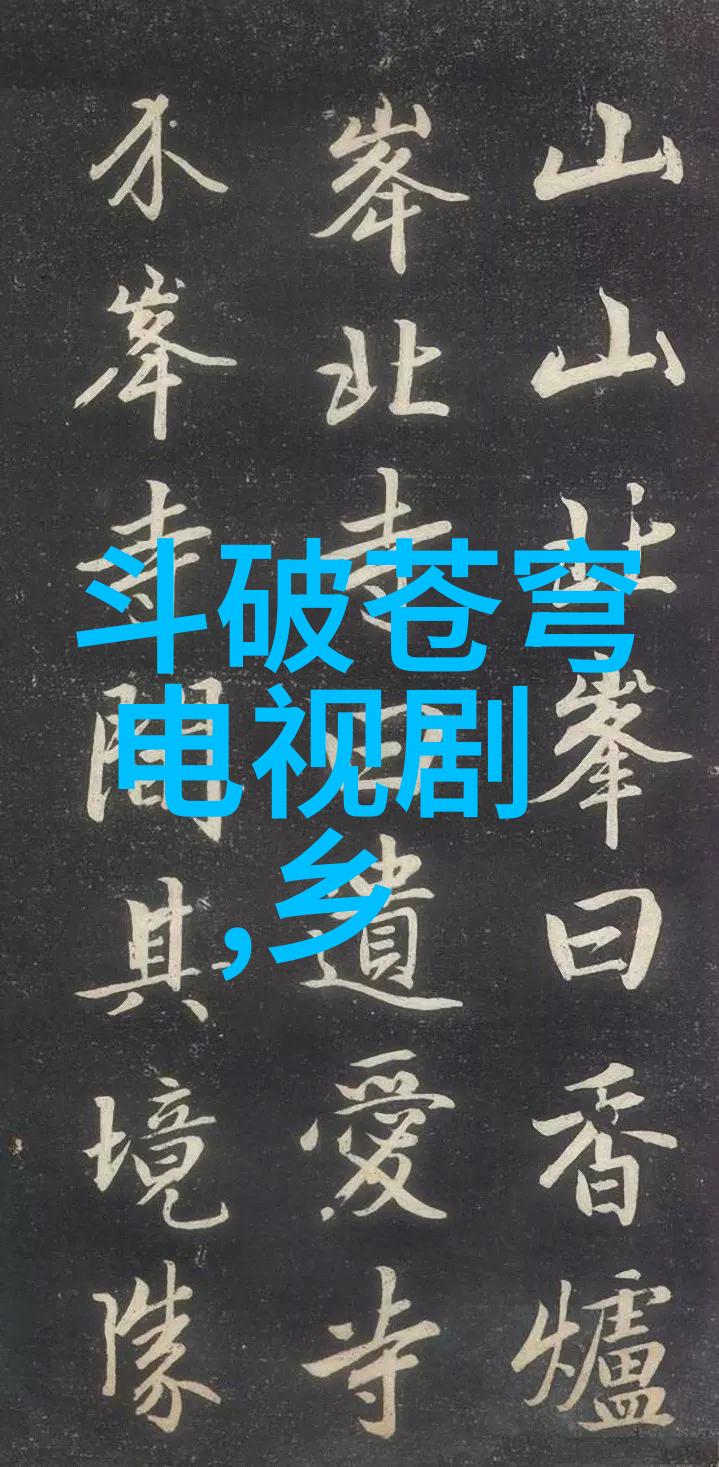 山山北峯曰香爐
峯北寺曰遺愛寺
峯寺間其境
斗破苍穹
电视剧
,乡